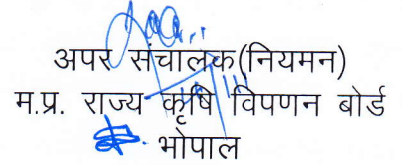 अपर संचालक(नियमन)
म.प्र. राज्य कृषि विपणन बोर्ड
भोपाल